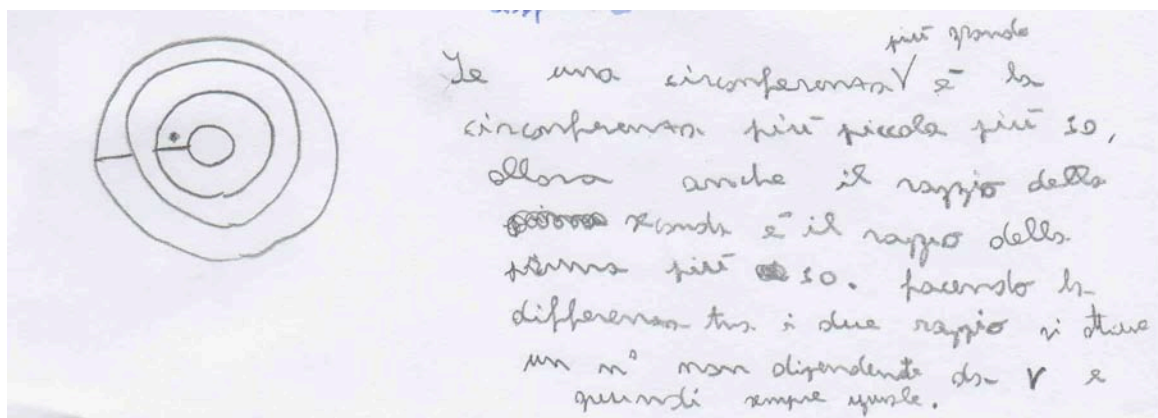 più grande
Se una circonferenza V è la
circonferenza più piccola più 10,
allora anche il raggio della
seconda è il raggio della
prima più 10. facendo la
differenza tra i due raggio si ottiene
un n° non dipendente da r e
quindi sempre uguale.